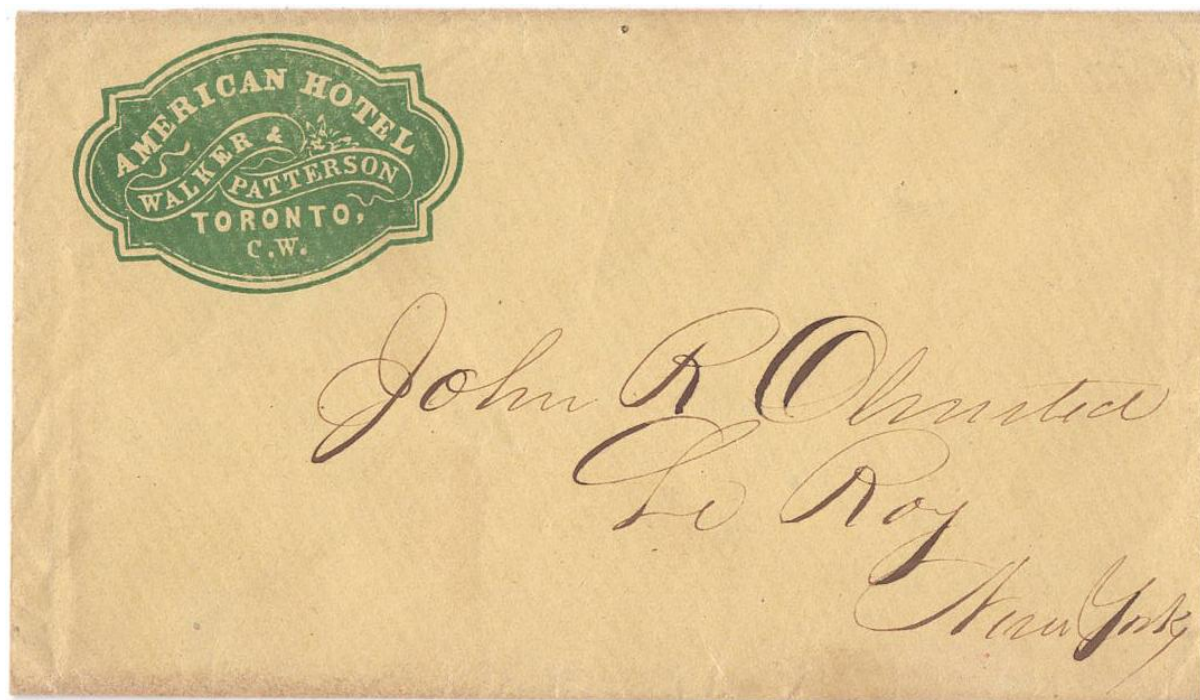 AMERICAN HOTEL
WALKER &
PATTERSON
TORONTO,
C.W.
John R Olmsted
Le Roy
New York